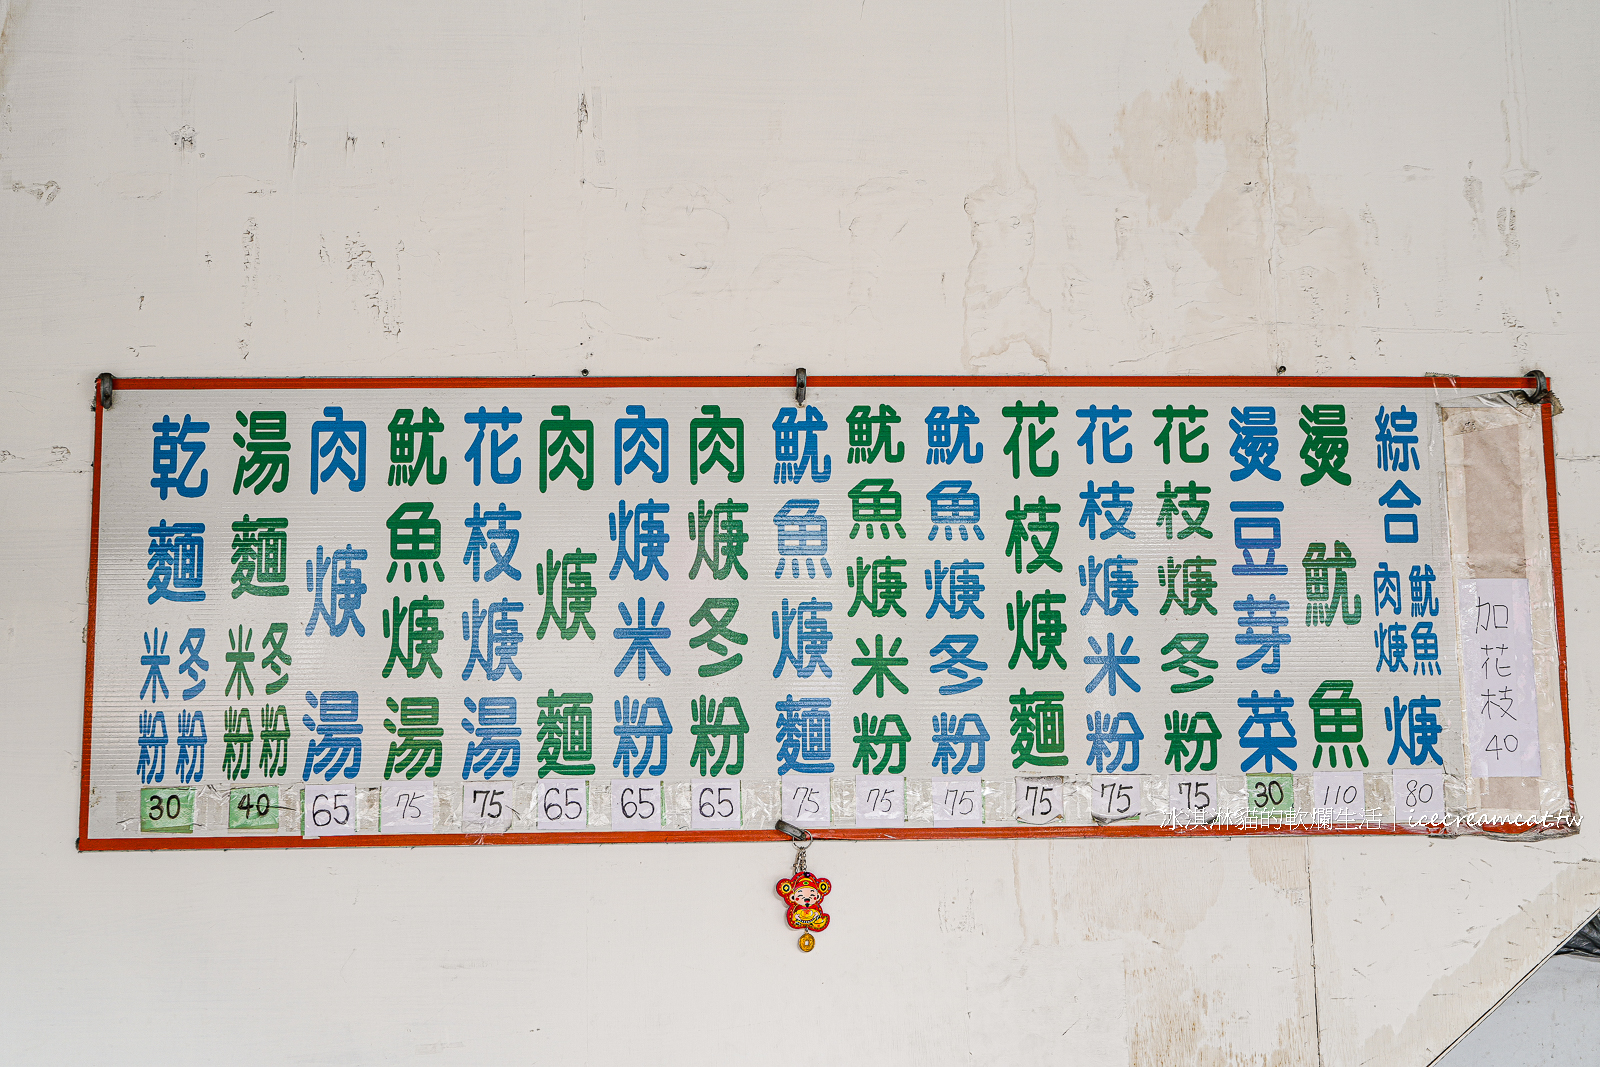 乾麵 米粉 冬粉 30
湯麵 米粉 冬粉 40
肉焿湯 65
魷魚焿湯 75
花枝焿湯 75
肉焿麵 65
肉焿米粉 65
肉焿冬粉 65
魷魚焿麵 75
魷魚焿米粉 75
魷魚焿冬粉 75
花枝焿麵 75
花枝焿米粉 75
花枝焿冬粉 75
燙豆芽菜 30
燙魷魚 110
綜合 肉焿 魷魚 焿 80
加花枝40
冰淇淋貓的軟爛生活｜icecreamcat.tw